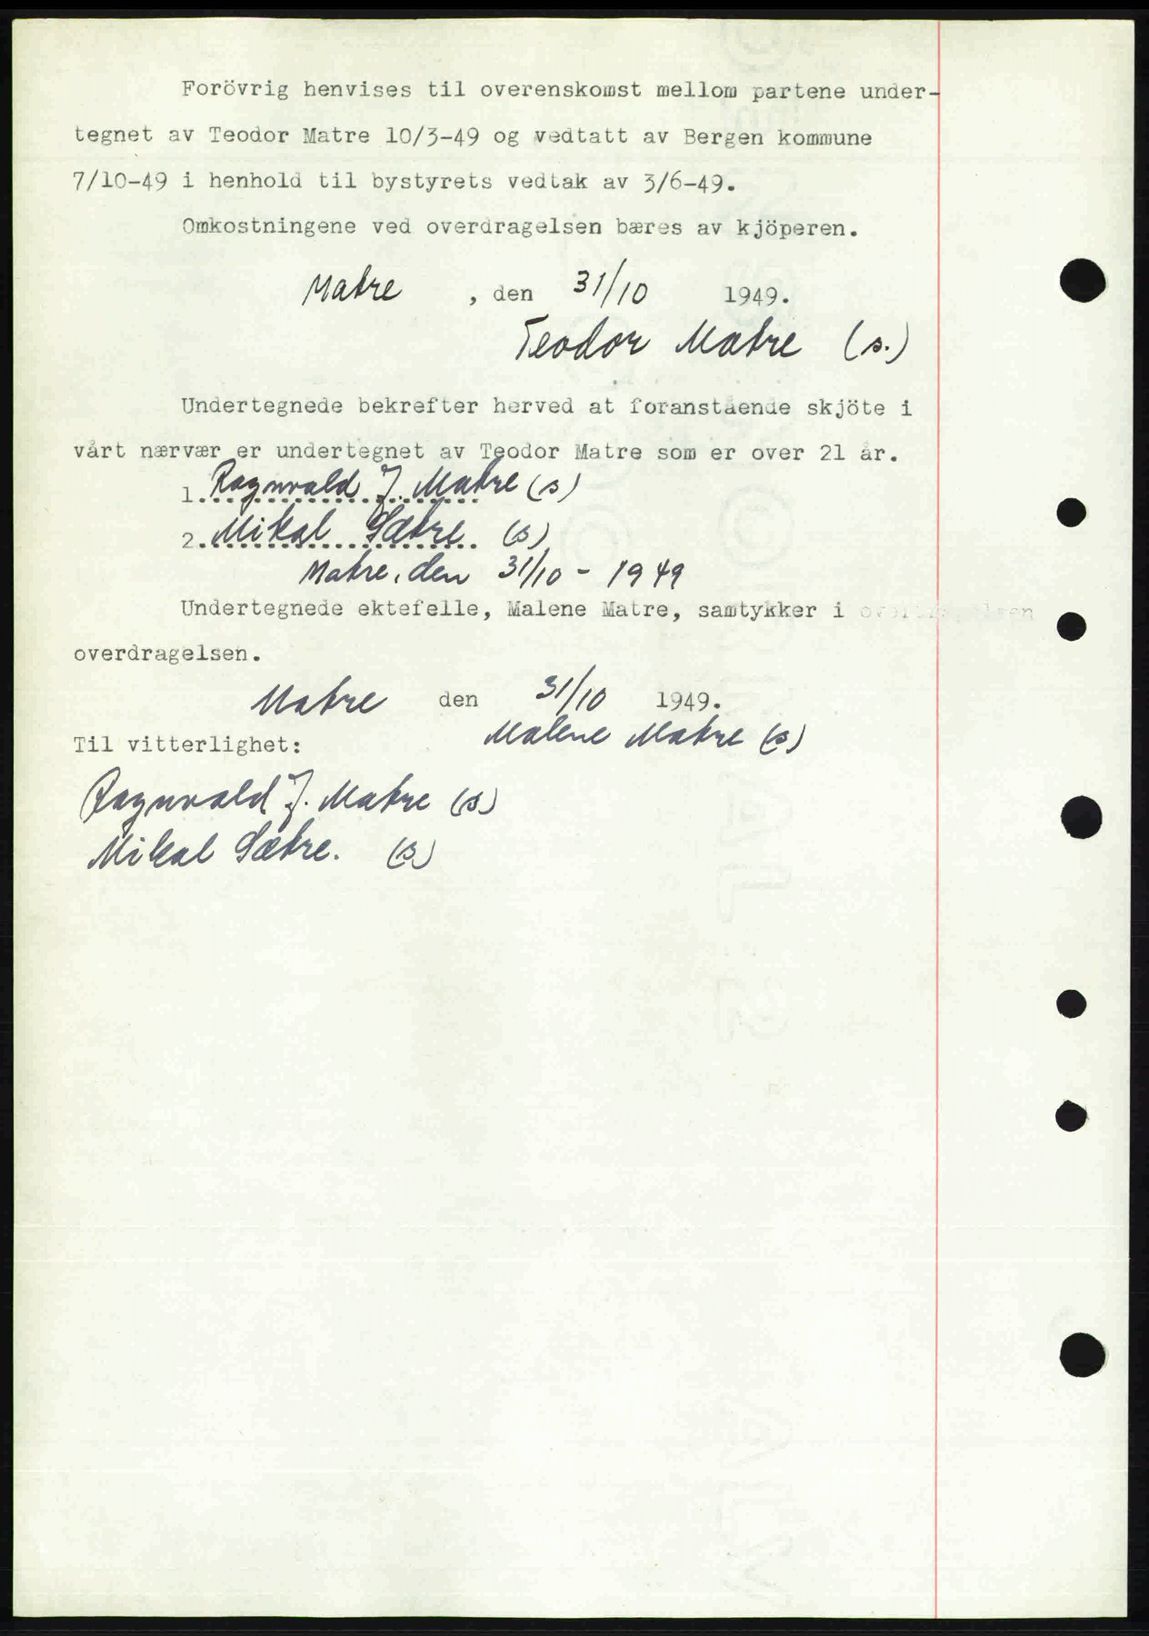 Forövrig henvises til overenskomst mellom partene under-
tegnet av Teodor Matre 10/3-49 og vedtatt av Bergen kommune
7/10-49 i henhold til bystyrets vedtak av 3/6-49.
Omkostningene ved overdragelsen bæres av kjöperen.
Matre , den 31/10 1949.
Teodor Matre (s.)
Undertegnede bekrefter herved at foranstående skjöte i
vårt nærvær er undertegnet av Teodor Matre som er over 21 år.
1. Ragnvald J. Matre (s)
2. Mikal Sætre. (s)
Matre, den 31/10 - 1949
Undertegnede ektefelle, Malene Matre, samtykker i
overdragelsen.
Matre den 31/10 1949.
Malene Matre (s)
Til vitterlighet:
Ragnvald J. Matre (s)
Mikal Sætre. (s)